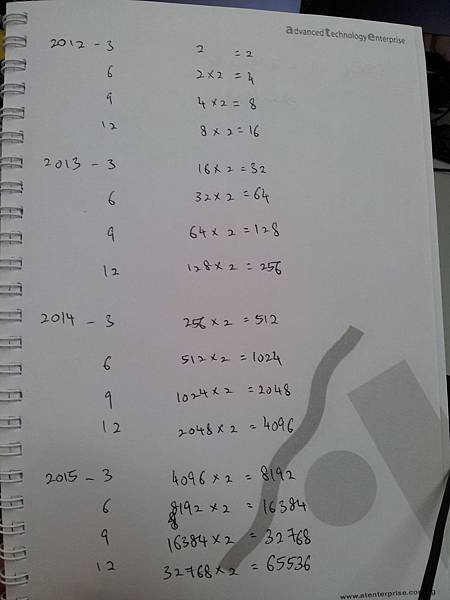 advanced technology enterprise
2012 - 3 2 = 2
6 2 x 2 = 4
9 4 x 2 = 8
12 8 x 2 = 16
2013 - 3 16 x 2 = 32
6 32 x 2 = 64
9 64 x 2 = 128
12 128 x 2 = 256
2014 - 3 256 x 2 = 512
6 512 x 2 = 1024
9 1024 x 2 = 2048
12 2048 x 2 = 4096
2015 - 3 4096 x 2 = 8192
6 8192 x 2 = 16384
9 16384 x 2 = 32768
12 32768 x 2 = 65536